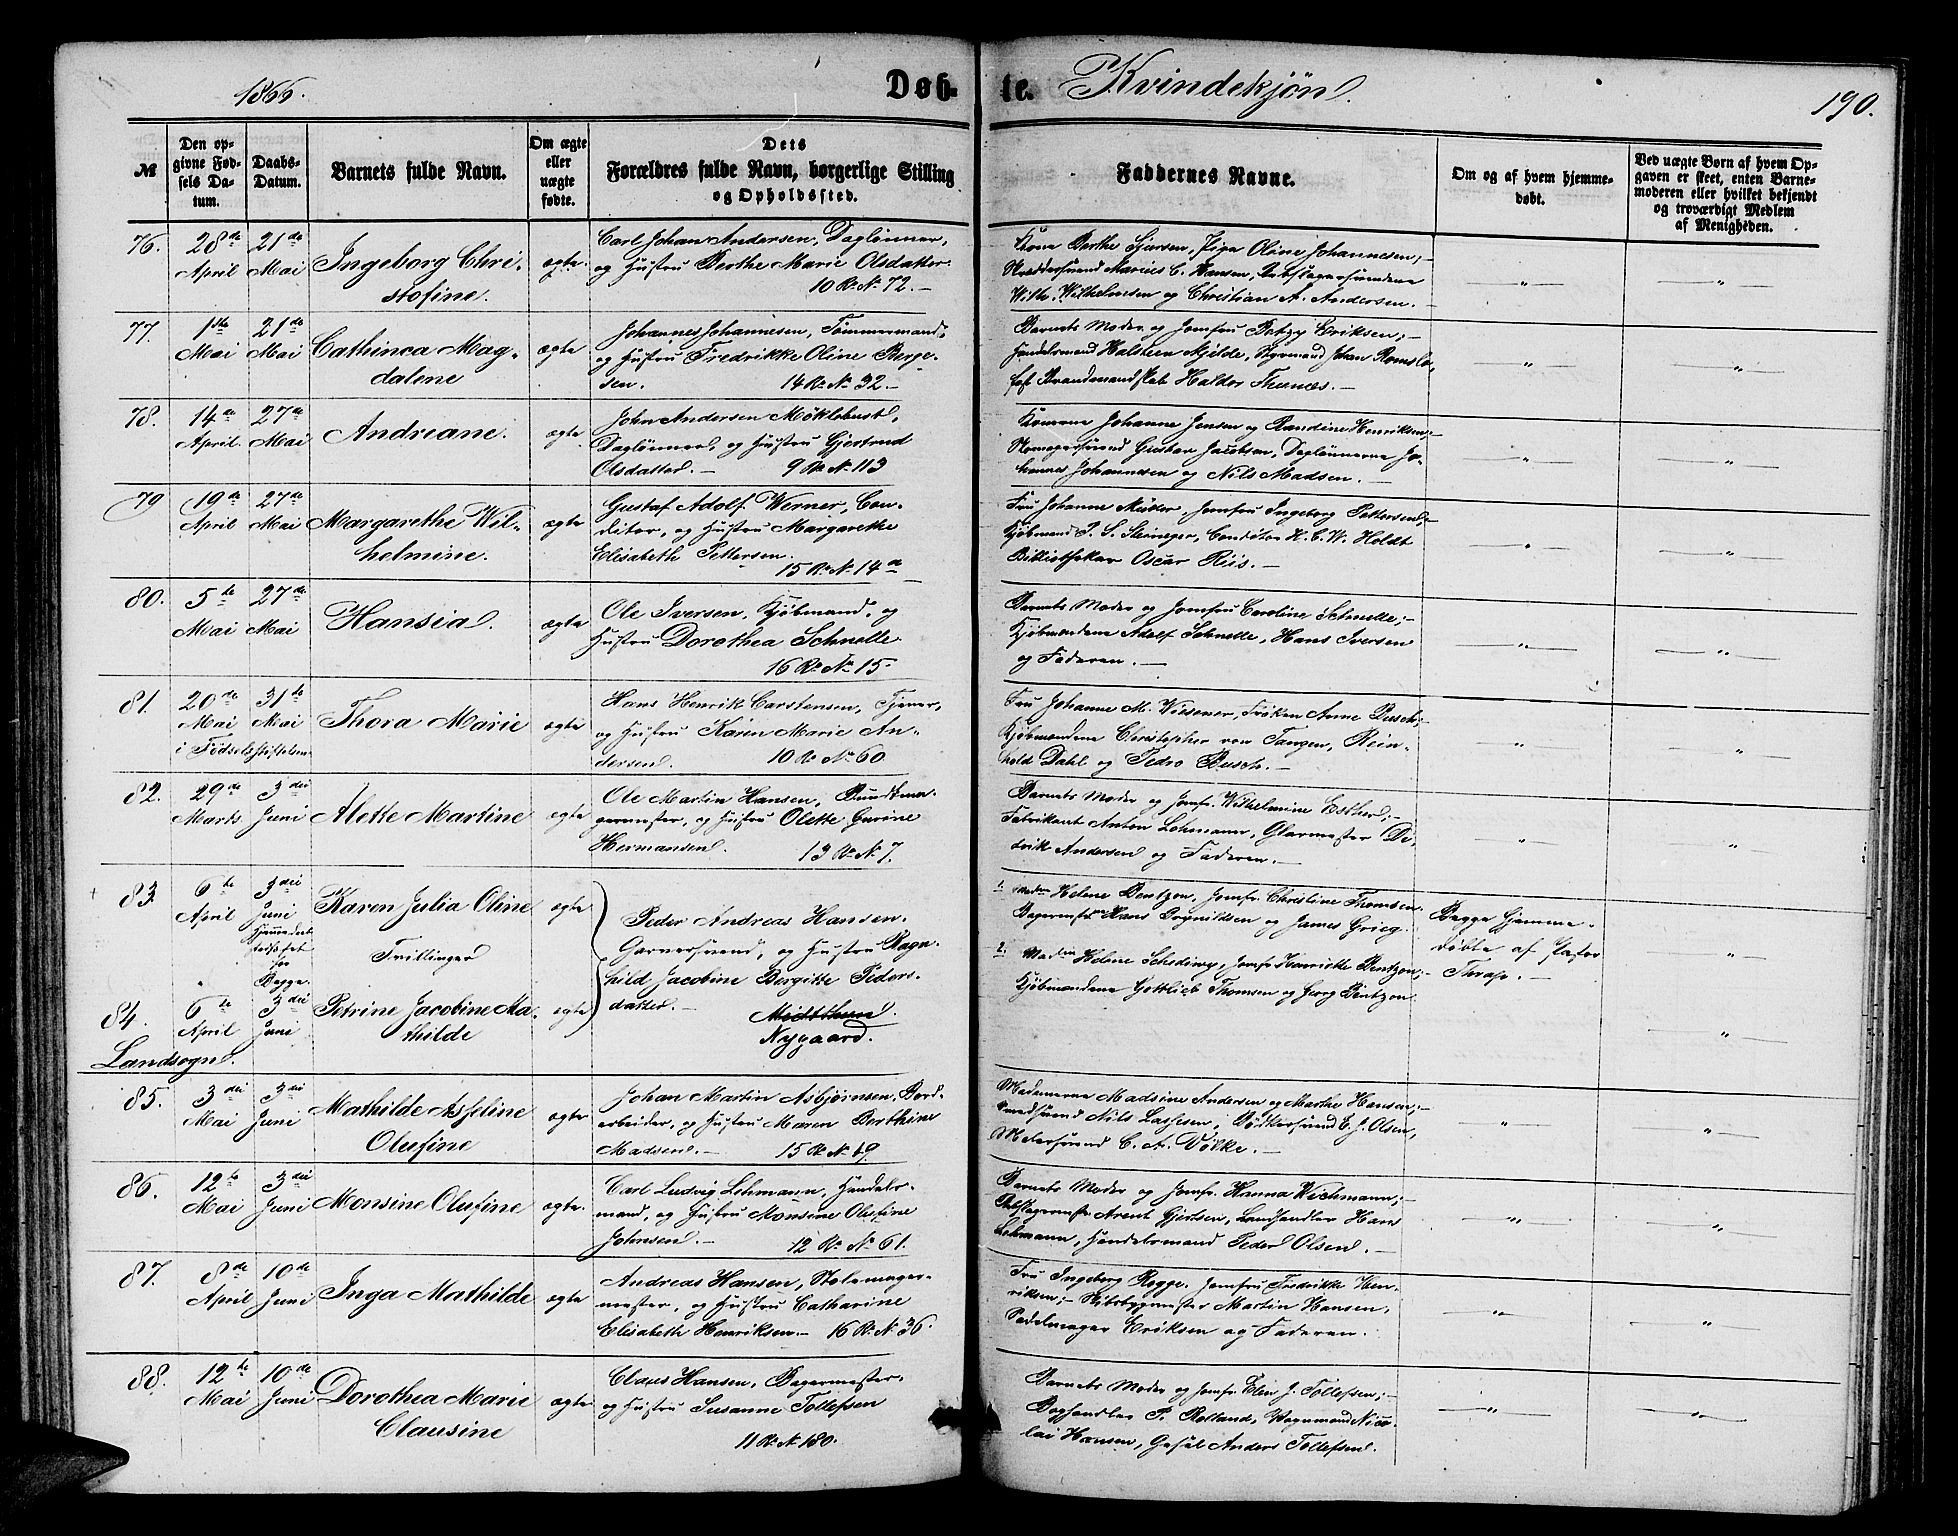 1866.
Døb-
te.
Kvindekjøn.
190.
№
Den op-
givne Fød-
sels Da-
tum.
Daabs-
Datum.
Barnets fulde Navn.
Om ægte
eller
uægte
fødte.
Dets
Forældres fulde Navn, borgerlige Stilling
og Opholdssted.
Faddernes Navne.
Om og af hvem hjemme-
døbt.
Ved uægte Børn af hvem Op-
gaven er skeet, enten Barne-
moderen eller hvilket bekjendt
og troværdigt Medlem
af Menigheden.
76.
28de
April
21de
Mai
Ingeborg Chri-
stofine.
ægte.
Carl Johan Andersen, Daglønner,
og Hustru Berthe Marie Olsdatter
10 R. No 72.
Kone Berthe Sjursen, Pige Oline Johannesen;
Marius C. Hansen,
Wilh. Wilhelmsen og Christian A. Andersen.
77.
1ste
Mai
21de
Mai
Cathinca Mag-
dalene
ægte
Johannes Johannesen, Tømmermand,
og Hustru Fredrikke Oline Berge-
sen.
14 R. No 32.
Barnets Moder og Jomfru Betzy Eriksen;
Handelsmand Halsteen Mjelde, Styrmand Johan Romslo,
Haldor Thunæs.
78.
14de
April
27de
Mai
Andreane.
ægte
John Andersen Møklebust,
Daglønner, og Hustru Gjertrud
Olsdatter.
9 R. No 113
Konerne Johanne Jensen og Randine Henriksen;
Skomagersvend Gustav Jacobsen, Daglønnerne Jo-
hannes Johannesen og Nils Madsen.
79
19de
April
27de
Mai
Margarethe Wil-
helmine.
ægte
Gustaf Adolf Werner, Con-
ditor, og Hustru Margarethe
Elisabeth Pettersen.
15 R. No 14a
Fru Johanne Müller, Jomfru Ingeborg Pettersen;
Kjøbmand P. S. Steineger, Conditor H. C. W. Holdt
Bibliothekar Oscar Riis.
80.
5te
Mai
27de
Mai
Hansia.
ægte
Ole Iversen, Kjøbmand, og
Hustru Dorothea Schnelle
16 R. No 15.
Barnets Moder og Jomfru Caroline Schnelle;
Kjøbmændene Adolf Schnelle, Hans Iversen
og Faderen.
81.
20de
Mai
31te
Mai
i Fødselsstiftelsen
Thora Marie
ægte
Hans Henrik Carstensen, Tjener,
og Hustru Karen Marie An-
dersen.
10 R. No 60.
Fru Johanne M. Wiesener, Frøken Anne Busch;
Kjøbmændene Christopher von Tangen, Rein-
hold Dahl og Pedro Busch.
82.
29de
Marts
3die
Juni
Alette Martine
ægte
Ole Martin Hansen, Bundtma-
germester, og Hustru Olette Gurine
Hermansen.
13 R. No 7.
Barnets Moder og Jomfr. Wilhelmine Esther;
Fabrikant Anton Lohmann, Glarmester Di-
drik Andersen og Faderen.
83.
6te
April
3die
Juni
Hjemmedaab
for
Begge.
Karen Julia Oline
Tvillinger
ægte
Peder Andreas Hansen,
Garversvend, og Hustru Ragn-
hild Jacobine Bergitte Peders-
datter.
Midtthun.
Nygaard.
1. Madm Helene Bentzon, Jomfr. Christine Thomsen
Bagermstr Hans Brynildsen og James Grieg.
2. Madm Helene Scheding, Jomfr. Henriette Bentzon;
Kjøbmændene Gottlieb Thomsen og Georg Bentzon.
Begge hjemme-
døbte af Pastor
Thrap.
84.
Landsogn.
6te
April
3die
Juni
Petrine Jacobine Ma-
thilde
ægte
85.
3die
Mai
3die
Juni
Mathilde Asseline
Olufine
ægte
Johan Martin Asbjørnsen, Bord-
arbeider, og Hustru Maren Berthine
Madsen.
15 R. No 19.
Madamerne Madsine Andersen og Marthe Hansen;
Smedsvend Nils Lassesen, Bødkersvend E. J. Olsen,
Malersvend C. A. Völke.
86.
12te
Mai
3die
Juni
Monsine Olufine
ægte.
Carl Ludvig Lehmann, Handels-
mand, og Hustru Monsine Olufine
Johnsen.
12 R. No 61.
Barnets Moder og Jomfr. Hanna Wichmann;
Rebslagermstr. Arent Gjertsen, Landhandler Hans
Lehmann, Handelsmand Peder Olsen.
87.
8de
April
10de
Juni
Inga Mathilde
ægte
Andreas Hansen, Stolemager-
mester, og Hustru Catharine
Elisabeth Henriksen. 16 R. No 36.
Fru Ingeborg Rogge, Jomfru Fredrikke Hen-
riksen; Skibsbygmester Martin Hansen,
Sadelmager Eriksen og Faderen.
88.
12te
Mai
10de
Juni
Dorothea Marie
Clausine
ægte
Claus Hansen, Bagermester,
og Hustru Susanne Tollefsen
11 R. No 180.
Barnets Moder og Jomfr. Elen J. Tollefsen;
Boghandler P. Rolland, Vognmand Nico-
lai Hansen, Gesel Anders Tollefsen.